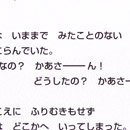 は　いままで　みたことのない
こらんでいた。
なの？　かあさ――ん！
どうしたの？　かあさ
こえに　ふりむきもせず
は　どこかへ　いってしまった。